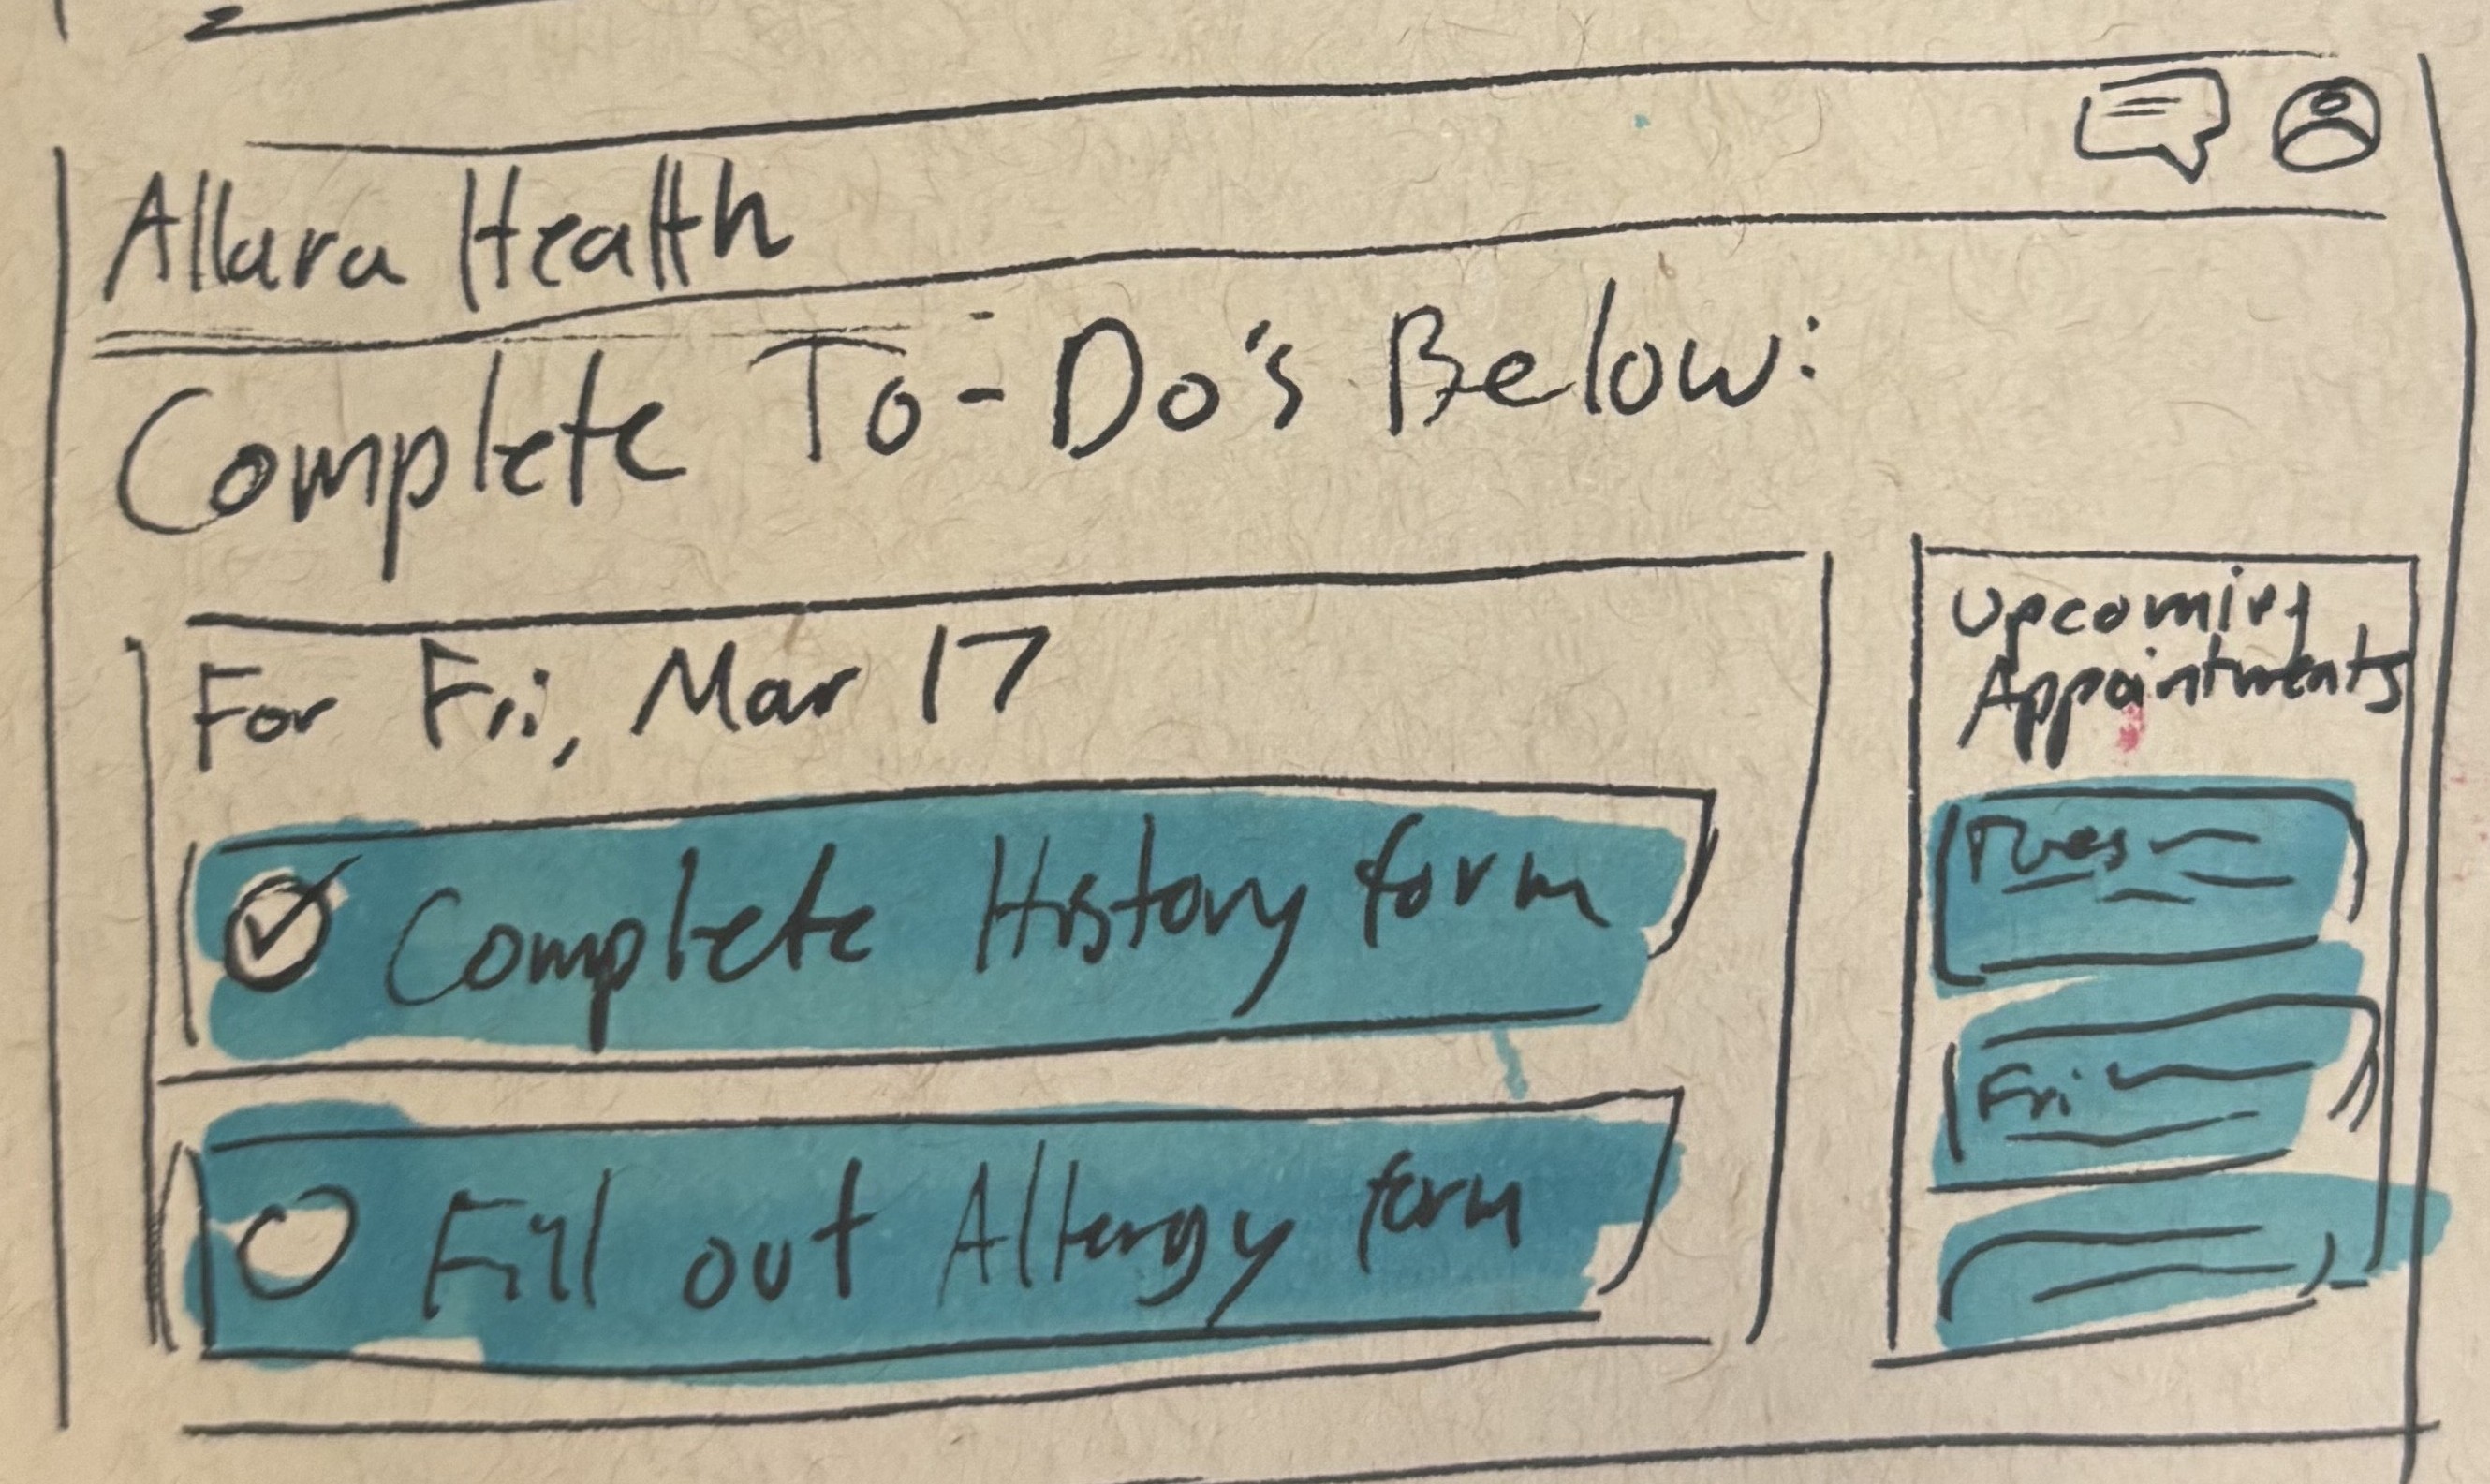 Allara Health
Complete To-Do's Below:
For Fri, Mar 17
Complete History form
Fill out Allergy form
Upcoming
Appointments
Tues
Fri